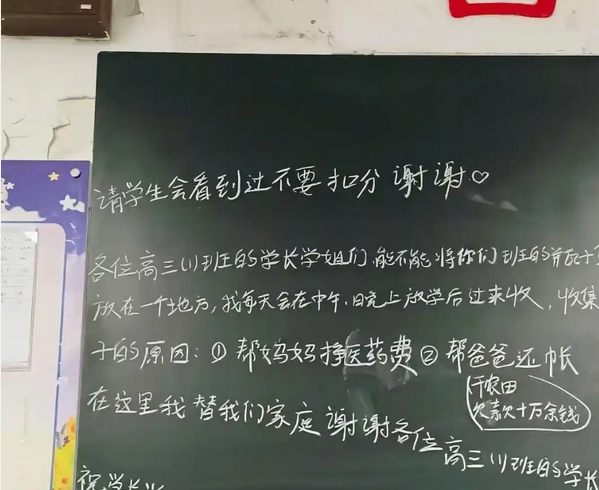 请学生会看到过不要扣分 谢谢♡
各位高三(1)班的学长学姐们,能不能将你们班的并瓦十
放在一个地方,我每天会在中午、日免上放学后过来收,收集
十的原因:① 帮妈妈挣医药费 ② 帮爸爸还帐
干农田
欠款欠十万余钱
在这里我替我们家庭谢谢各位高三(1)班的学长
祝学长